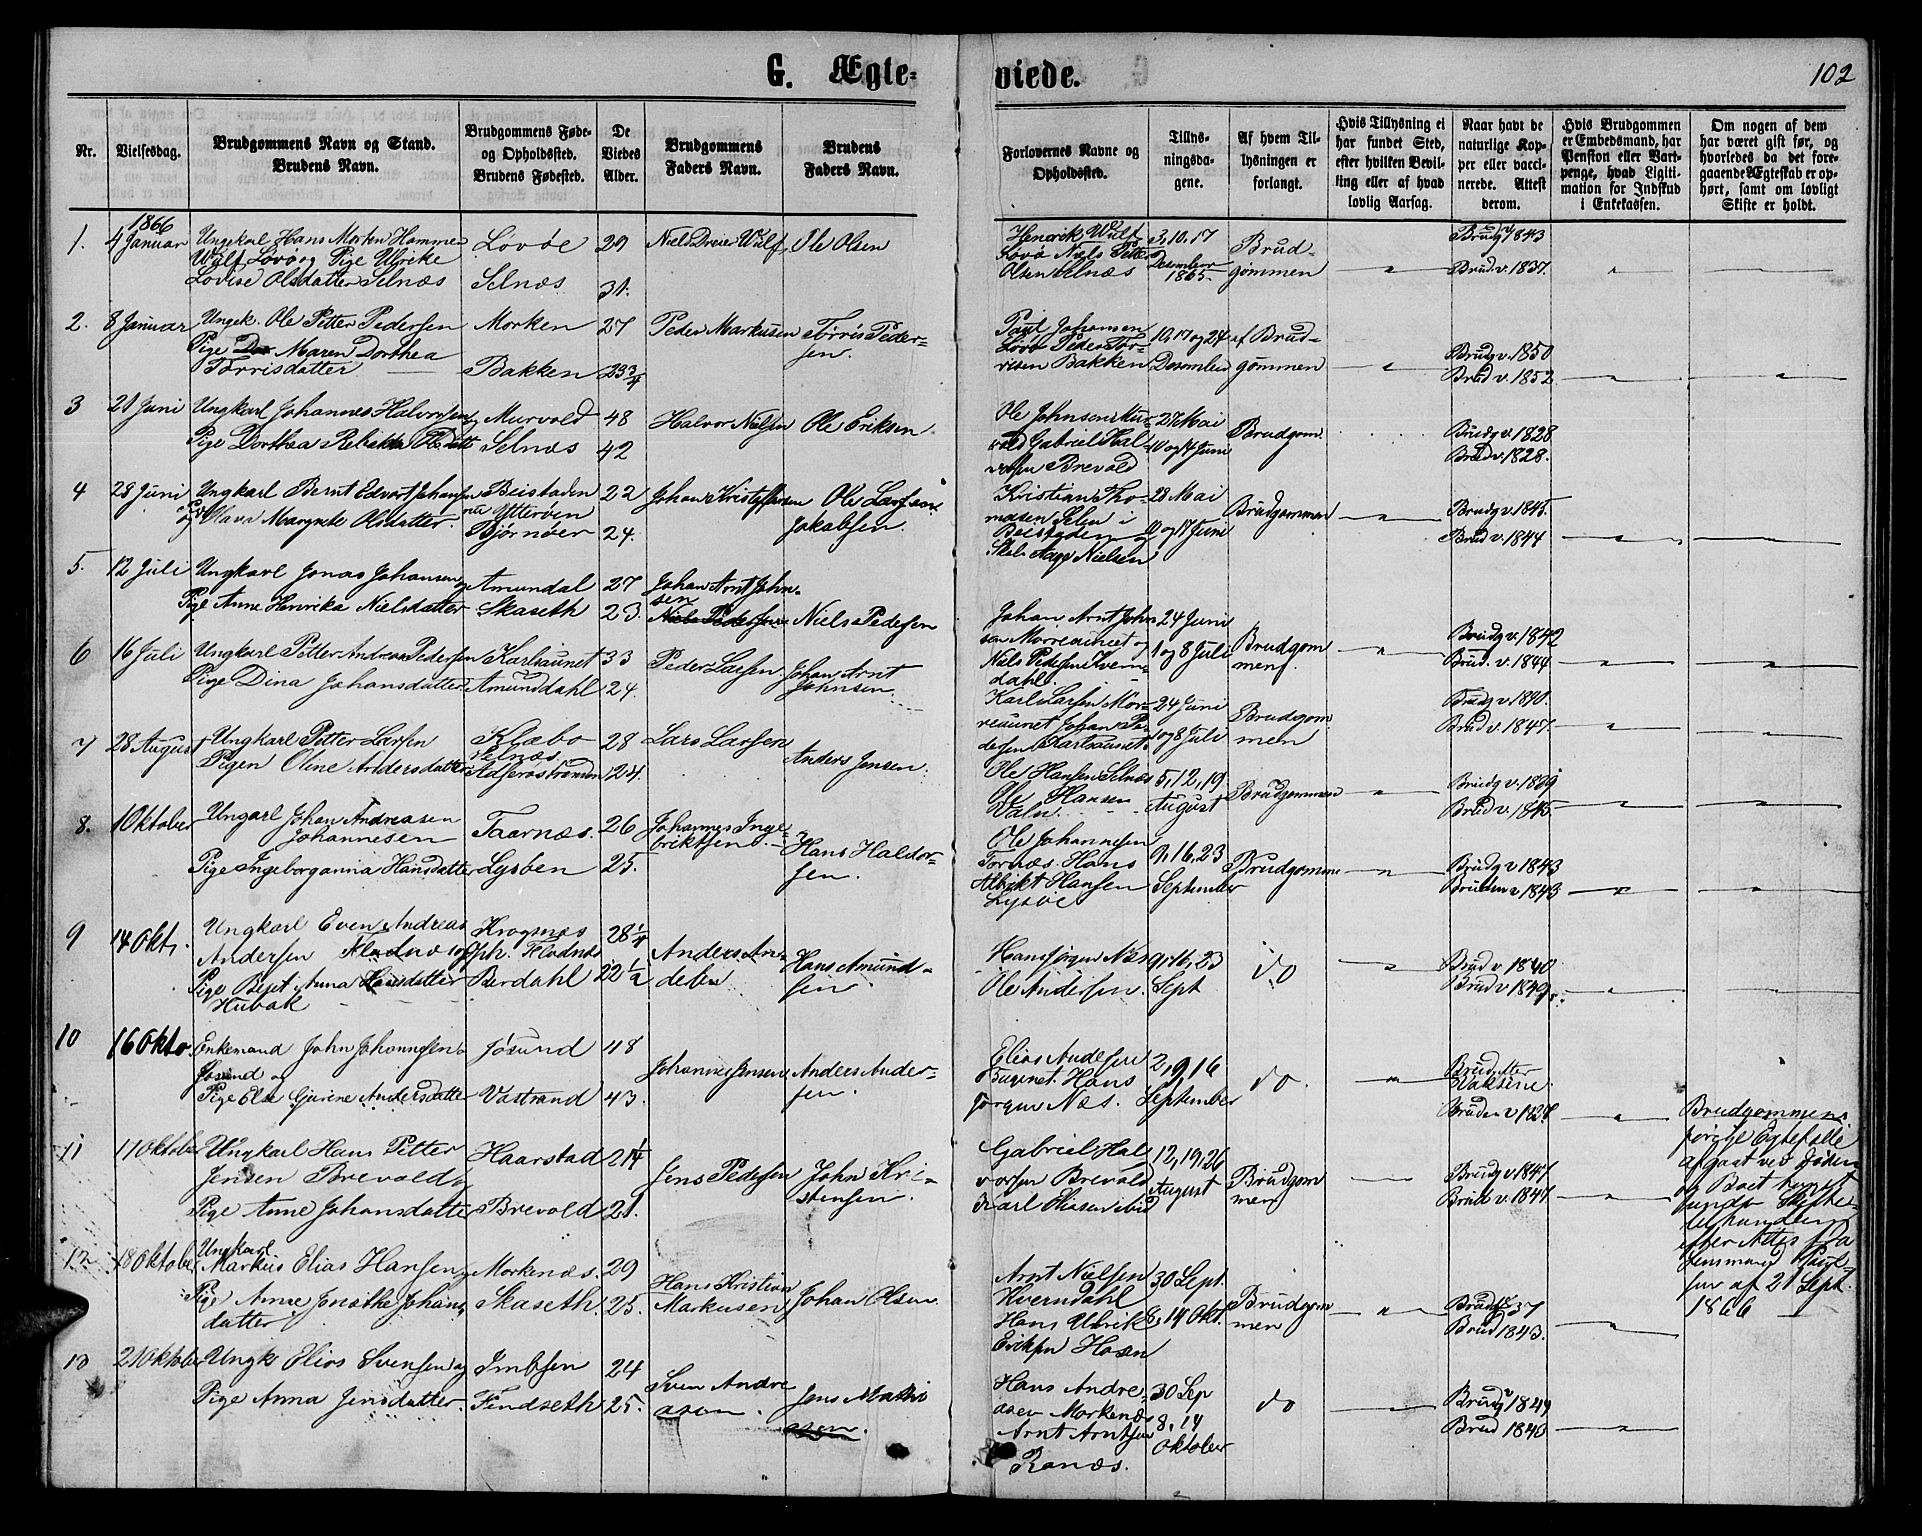 G. Ægte-
viede.
102
Nr.
Vielsesdag.
Brudgommens Navn og Stand.
Brudens Navn.
Brudgommens Føde-
og Opholdssted.
Brudens Fødested.
De
Viedes
Alder.
Brudgommens
Faders Navn.
Brudens
Faders Navn.
Forlovernes Navne og
Opholdssted.
Tillys-
ningsda-
gene.
Af hvem Til-
lysningen er
forlangt.
Hvis Tillysning ei
har fundet Sted,
efter hvilken Bevil-
ling eller af hvad
lovlig Aarsag.
Naar havt de
naturlige Kop-
per eller vacci-
nerede. Attest
derom.
Hvis Brudgommen
er Embedsmand, har
Pension eller Vart-
penge, hvad Ligiti-
mation for Indskud
i Enkekassen.
Om nogen af dem
har været gift før, og
hvorledes da det fore-
gaaende Ægteskab er op-
hørt, samt om lovligt
Skifte er holdt.
1866
1.
4 Januar
Ungekarl Hans Morten Hammer
Wulf Lovø og Pige Ulrike
Lovise Olsdatter Selnæs
Lovøe
Selnæs
29
31.
Niels Dreier Wulf
Ole Olsen
Henrik Wulf
Lovø Niels Petter
Olsen Selnæs
3, 10, 17
Desember
1865.
Brud-
gommen
Brudg v 1843
Brud v. 1837.
2.
8 Januar
Ungek. Ole Petter Pedersen
Pige Maren Dorthea
Tørrisdatter
Morken
Bakken
27
23 3/4
Peder Markusen
Tørris Peder-
sen.
Paul Johansen
Lovø Peder Tør-
risen Bakken
10, 17 og 24
Desember
af Brud-
gommen
Brudg v. 1850
Brud v. 1852
3
21 Juni
Ungkarl Johannes Halvorsen
Pige Dorthea Rebekka Olsdatt
Murvold
Selnæs
48
42
Halvor Nielsen
Ole Eriksen
Ole Johnsen Mur-
vold Gabriel Hal-
vorsen Brevold
27 Mai
10 og 17 Juni
Brudgom
Brudg v. 1828
Brud v. 1828.
4
28 Juni
Ungkarl Bernt Edvart Johansen
og Olava Margrete Olsdatter.
Beistaden
nu Ytterøen
Bjørnøer
22
24.
Johan Kristoffersen
Ole Larsen
Jakobsen.
Kristian Tho-
masen Selen i
Beistaden
Aage Nielsen
28 Mai
10 og 17 Juni
Brudgommen
Brudg v. 1845.
Brud v. 1844
5.
12 Juli
Ungkarl Jonas Johansen og
Pige Anne Henrika Nielsdatter
Amundal
Skaseth
27
23.
Johan Arnt John-
sen
Niels Pedersen
Niels Pedersen
Johan Arnt John
sen Morreaunet og
Niels Pedersen Kvern-
dahl.
24 Juni
1 og 8 Juli
Brudgom
men
Brudg v. 1842
Brud. v. 1844.
6
16 Juli
Ungkarl Petter Andreas Pedersen
Pige Dina Johansdatter
Karlsaunet
Amunddahl
33
24.
Peder Larsen.
Johan Arnt
Johnsen.
Karl Larsen Mor-
reaunet Johan Pe-
dersen Karlsaunet
24 Juni
1 og 8 Juli
Brudgom
men
Brudg v 1840.
Brud v. 1847.
7
28 August
Ungkarl Petter Larsen
Pigen Oline Andersdatter
Klæbo
Selnæs
28
24.
Lars Larsen
Anders Jensen.
Ole Hansen Selnæs
Ole Hansen
Valn.
5, 12, 19
August
Brudgommen
Brudg v. 1839
Brud v. 1845.
8.
1 Oktober
Ungarl Johan Andreasen
Johannesen
Pige Ingeborganna Hansdatter
Taarnæs.
Lysøen
26
25.
Johannes Inge-
briktsen.
Hans Haldor-
sen.
Ole Johannesen
Tornæs. Hans
Albrikt Hansen
Lysøe
9, 16, 23
September
Brudgommen
Brudg v 1843
Bruden v 1843
9
14 Okt.
Ungkarl Even Andreas
Andersen Fladnæs og
Pige Berit Anna Hansdatter
Hubak
Krogsnæs
Oph. Fladnæs
Berdahl
28 1/4
22 1/2
Anders An-
desen
Hans Amund-
sen.
Hans Jørgen Næs
Ole Andersen.
9, 16, 23
Sept
do
Brud v. 1840
Brud v 1849.
10
16 Okto.
Enkemand John Johannesen
Jøsund og
Pige Else Gurine Andersdatter
Jøsund
Vastrand
48
43.
Johannes Jensen
Anders Ander-
sen.
Elias Andesen
Hans
Jørgen Næs.
2, 9, 16
September
do.
Vaksine.
Bruden v 1827
Brudgommens
forige Egtefælle
afgaat ved Døden
og Boet tuget
under Skifte-
behandling
efter Attest fra
Lensmand Paul-
sen af 21 Sept.
1866
11
17 Oktober
Ungkarl Hans Petter
Jensen Brevold og
Pige Anne Johansdatter
Haarstad
Brevold
21 1/4
21.
Jens Pedersen
John Kri-
stensen.
Gabriel Hal
vorsen Brevold
Karl Olasen ibid
12, 19, 26
August
Brudgom
men
Brudg v. 1847
Brud v. 1847.
12
18 Oktober
Ungkarl
Markus Elias Hansen og
Pige Anne Jonethe Johans
datter
Morkenæs.
Skaseth.
29
25.
Hans Kristian
Markusen
Johan Olsen.
Arnt Nielsen
Kverndahl
Hans Ulrik
Eriksen Hosen
30 Sept.
8, 14 Okt.
Brudgom
men
Brudg 37
Brud 1843.
13
21 Oktober
Ungk. Elias Svensen og
Pige Anna Jensdatter.
Imbsen
Findseth
24
25.
Sven Andre
asen.
Jens Mathi
asen.
Hans Andre
asen Morkenæs
Arnt Arntsen
Ranæs.
30 Sep
8, 14
Oktober
do
Brudg 1849
Brud 1840